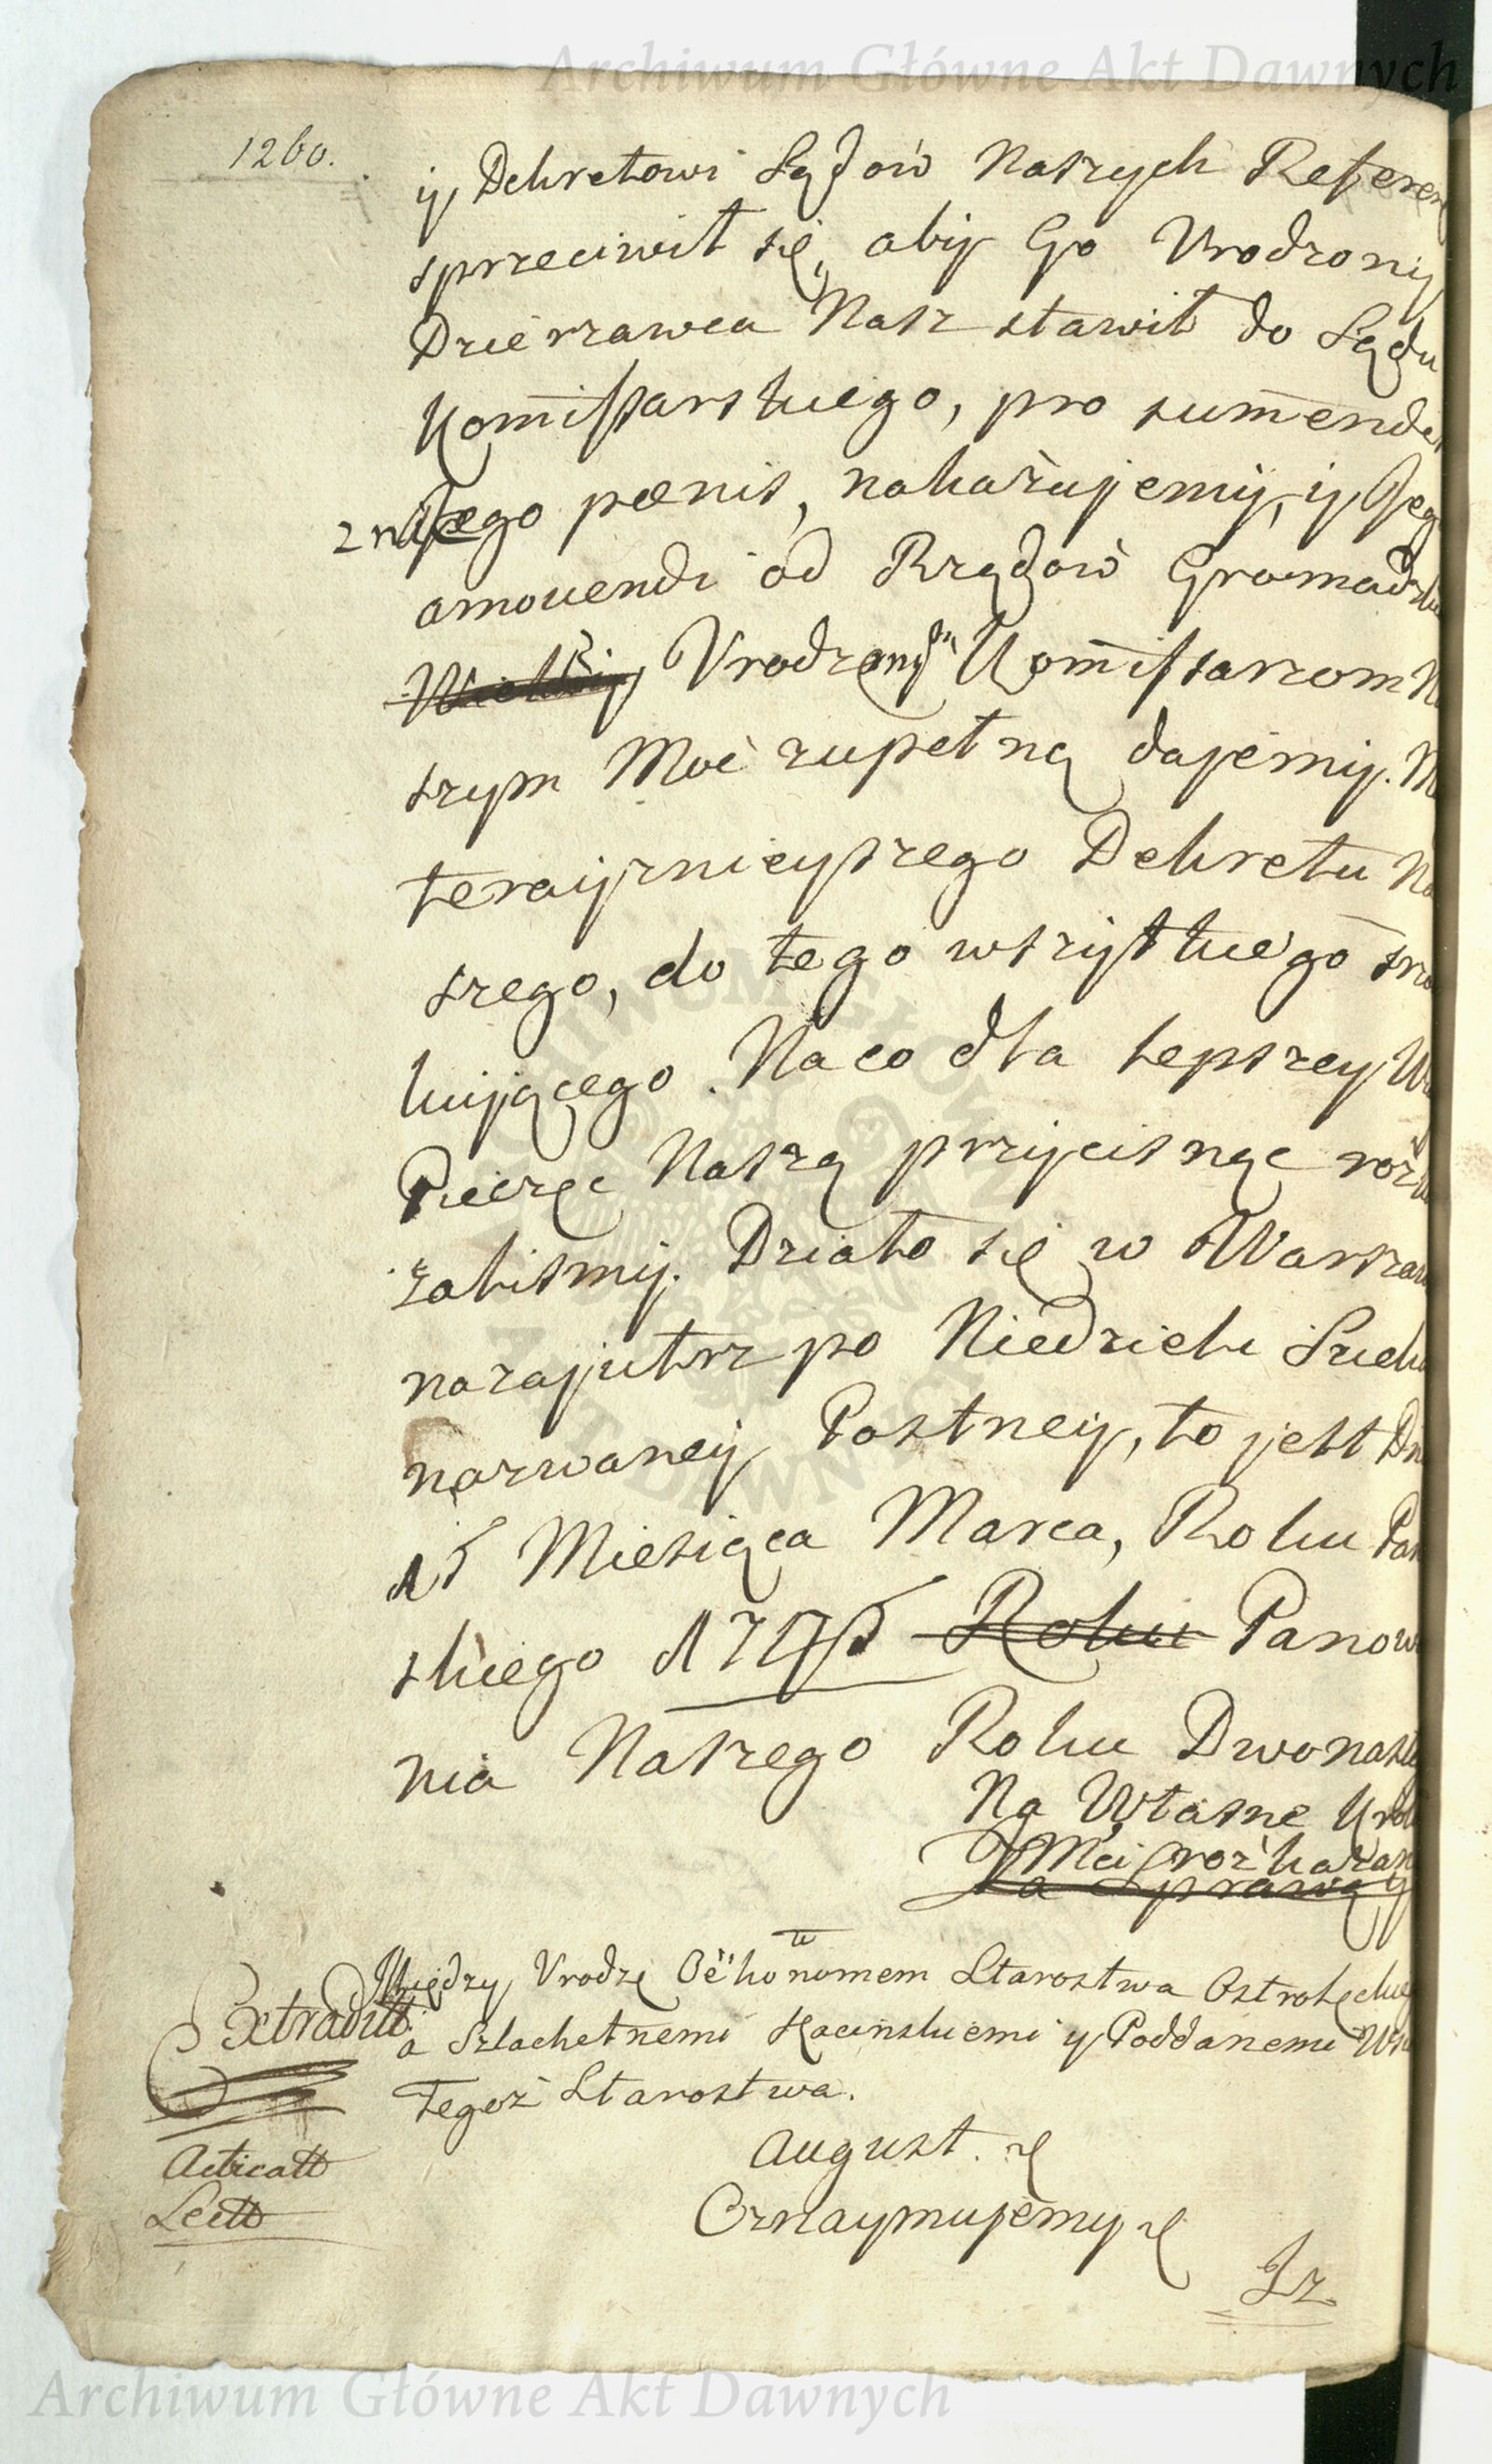 Archiwum Główne Akt Dawnych
1260.
iÿ Dekretowi Sądów Naszych Referen
sprzeciwił się, aby Go Urodzony
Dzierzawca Nasz stawił do Sądu
Kom̄issarskiego, pro sum̄endis
z niego pœnis, nakazujemy, iÿ Jego
amovendi od Rządow Gromadzk
Urodzonym Kom̄issarzom N
szym Moc zupełną dajemy. M
teraÿznieyszego Dekretu Na
szego, do tego wszystkiego
kującego. Na co dla lepszey W
Pieczęć Naszą przycisnąc rozk
zaliśmy. Działo się w Warszaw
nazajutrz po Niedzieli Sucha
nazwaneÿ Postneÿ, to jest Dn
15 Miesiąca Marca, Roku Pań
skiego 1775 Roku Panow
nia Naszego Roku Dwonaste
Na Własne Krol
JMci rozkazan
Za Sprawą
Między Urodz Oekonomem Starostwa Ostrołęckieg
a Szlachetnemi Kacinskiemi y Poddanemi Wsi
Tegoż Starostwa.
Extraditt
Acticatt
Lectt
August.
Oznaymujemy
Sz.
Archiwum Główne Akt Dawnych